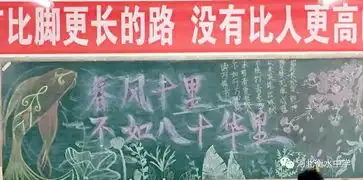 比脚更长的路 没有比人更高
春风十里
不如八十华里
河北衡水中学